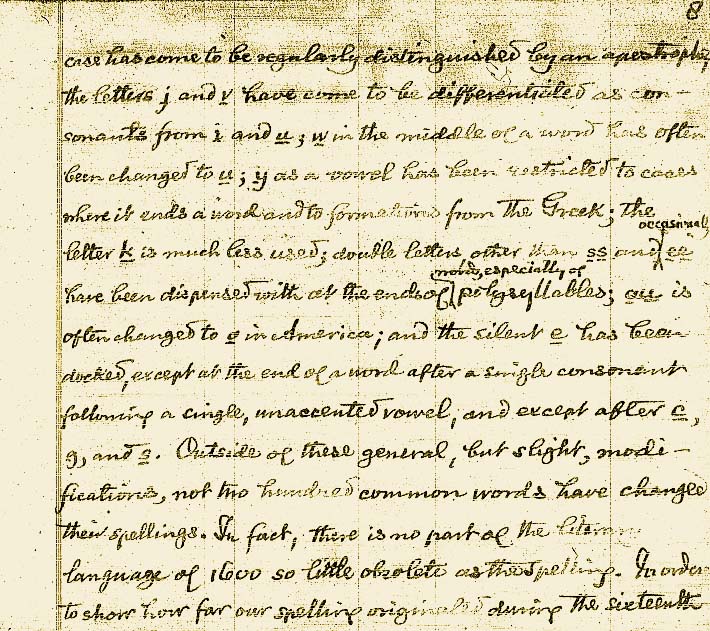 8
case has come to be regularly distinguished by an apostrophe
the letters j and v have come to be differentiated as con-
sonants from i and u; w in the middle of a word has often
been changed to u; y as a vowel has been restricted to cases
where it ends a word and to formations from the Greek; the
occasional
letter k is much less used; double letters other than ss and ee
words, especially of
have been dispensed with at the ends of polysyllables; ou is
often changed to o in America; and the silent e has been
docked, except at the end of a word after a single consonant
following a single, unaccented vowel, and except after c,
g, and s. Outside of these general, but slight, modi-
fications, not two hundred common words have changed
their spellings. In fact, there is no part of the literary
language of 1600 so little obsolete as the spelling. In order
to show how far our spelling originated during the sixteenth